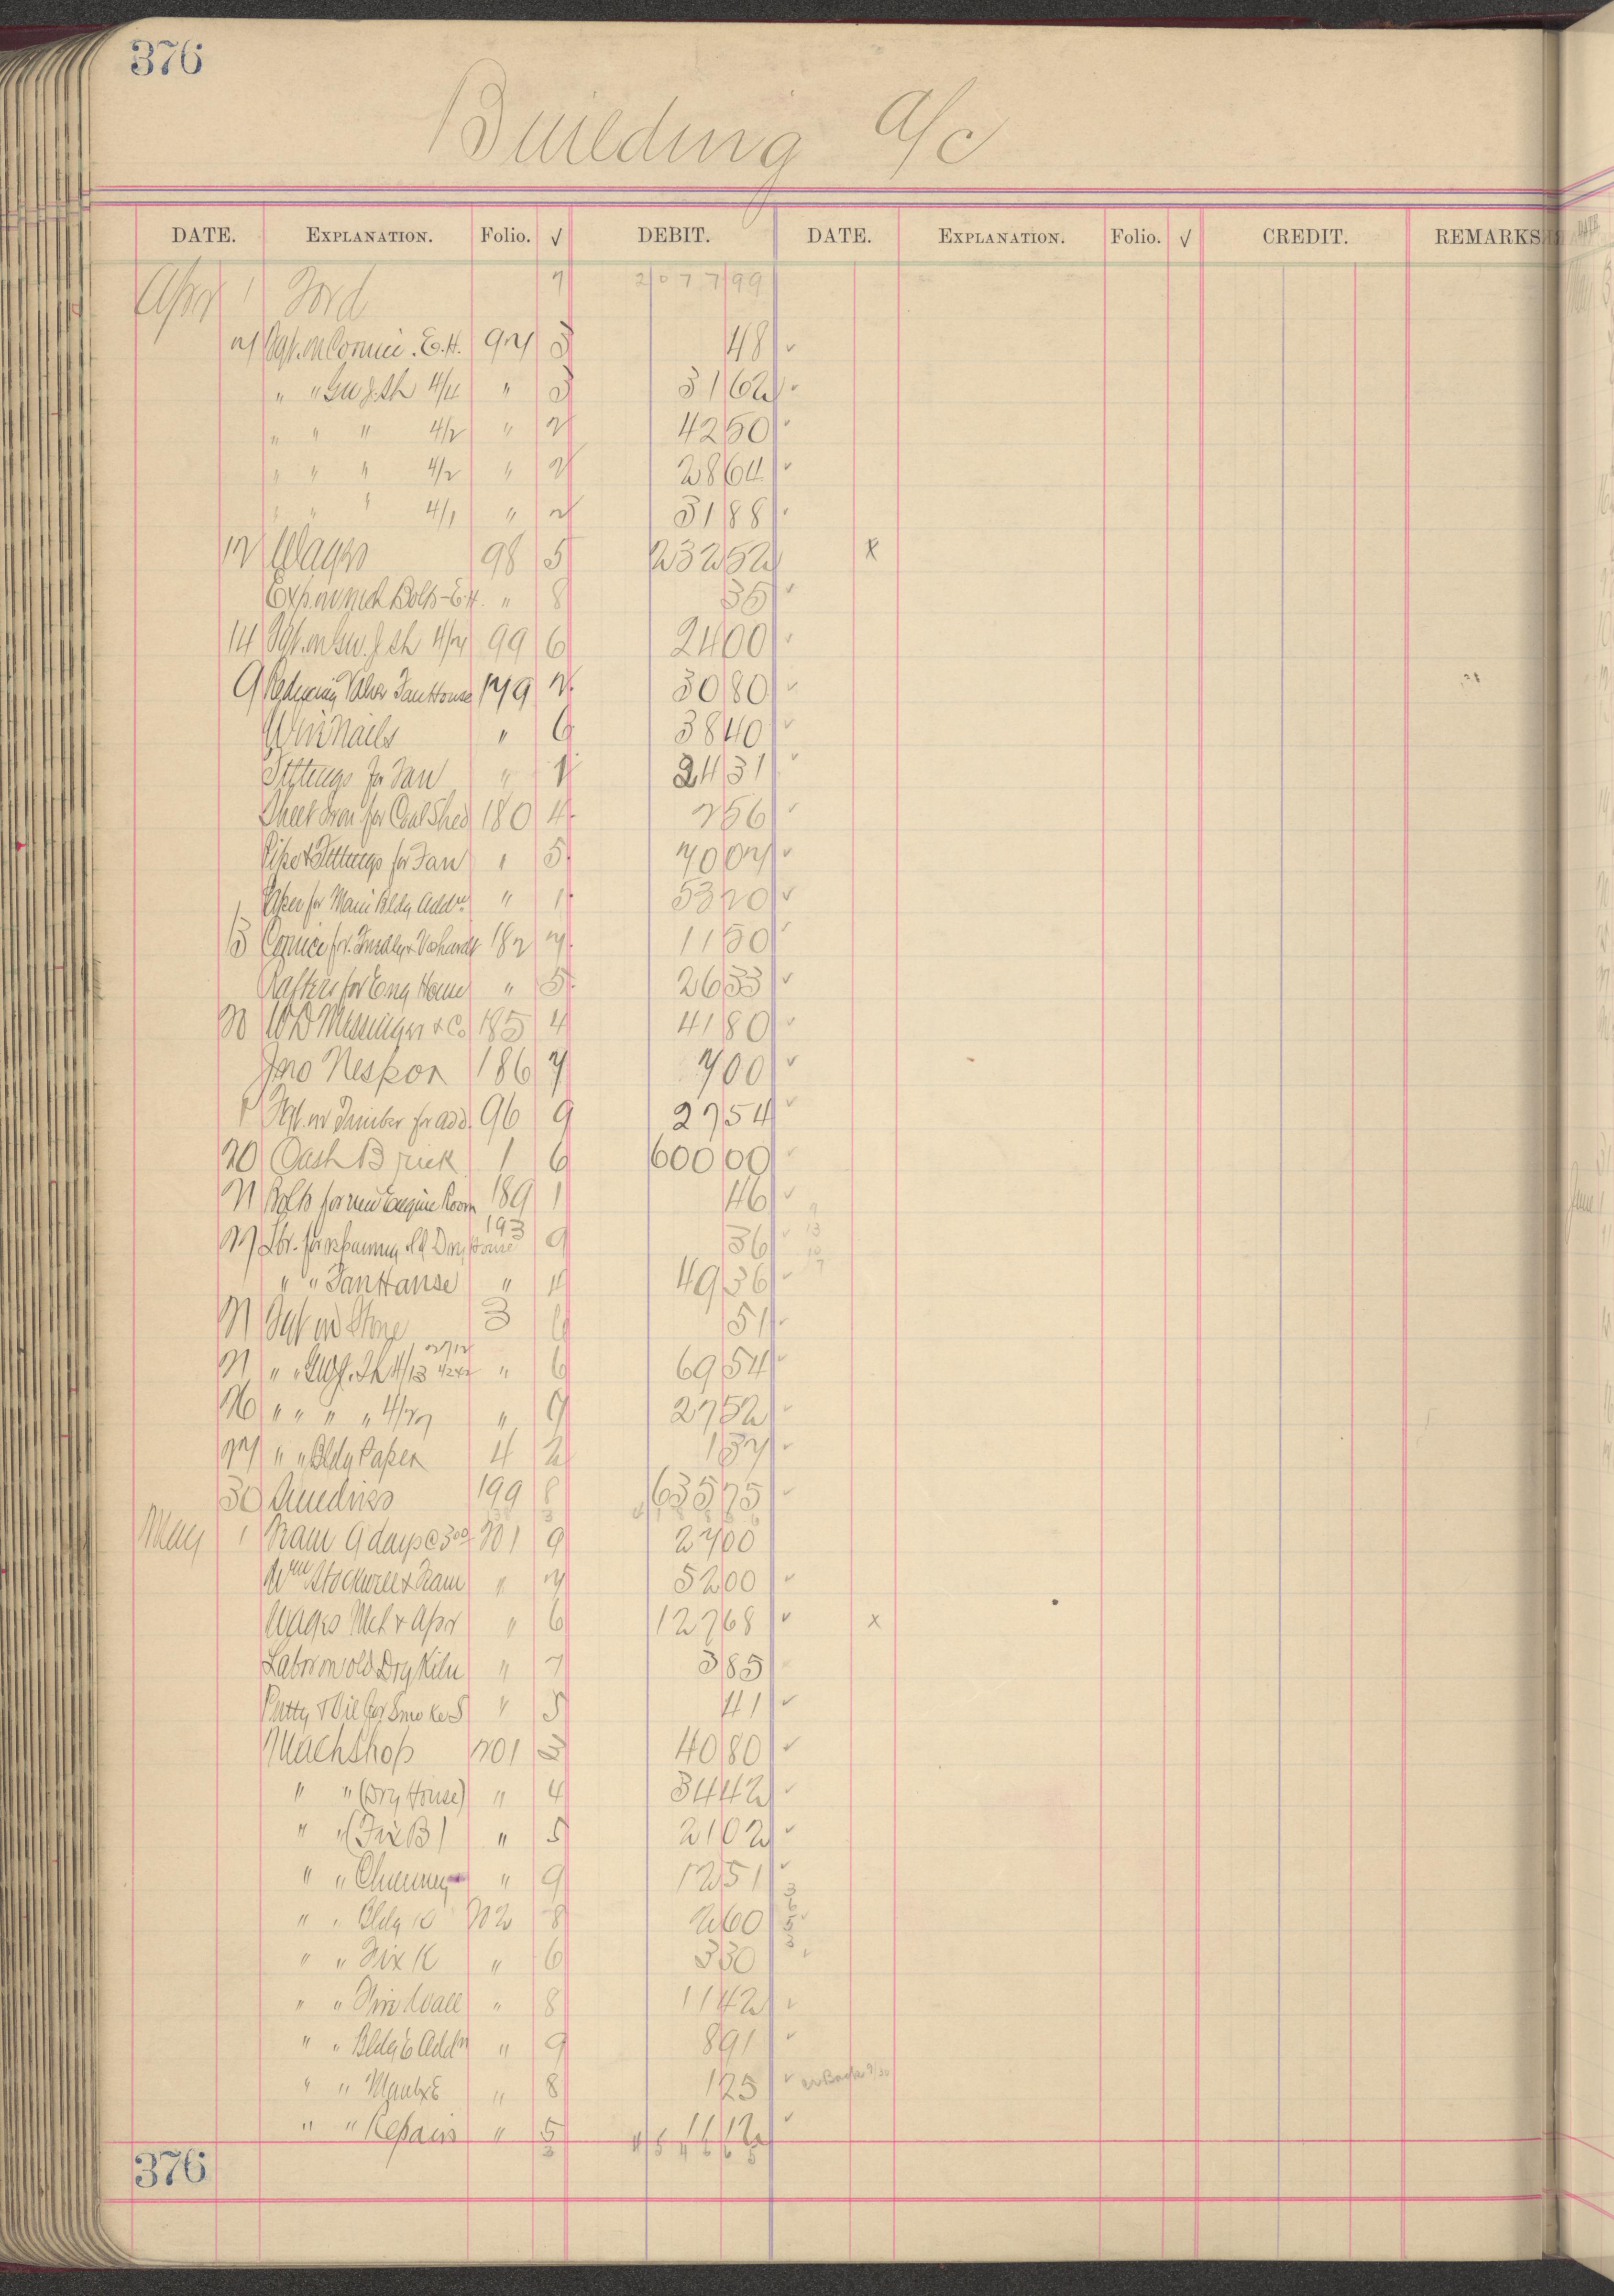 376
Building a/c
DATE. EXPLANATION. Folio. √ DEBIT. DATE. EXPLANATION. Folio. √ CREDIT. REMARKS
Apr 1 Ford 7 2077 99
Frt. on Cornice. E.H. 97 3 48 ✓
" " 4/4 " 3 31 62 ✓
" " " 4/2 " 2 42 50 ✓
" " " 4/2 " 2 28 64 ✓
" " " 4/1 " 2 31 88 ✓
12 Wages 98 5 232 52 x
Exp. on Bolts - E.H. " 8 35 ✓
14 Frt. on 99 6 24 00 ✓
9 Reducing Valve Fan House 179 2 30 80 ✓
Wire Nails " 6 38 40 ✓
Fittings for Fan " 1 24 31 ✓
Sheet Iron for Coal Shed 180 4 2 56 ✓
Pipe & Fittings for Fan " 5 70 07 ✓
Paper for Main Bldg Addn " 1 53 20 ✓
13 Cornice for 182 7 11 50 ✓
Rafters for Eng House " 5 26 33 ✓
20 W D Messinger & Co 185 4 41 80 ✓
Jno Neskor 186 7 7 00 ✓
Frt. on Timber for add. 96 9 27 54 ✓
20 Cash Brick 1 6 600 00 ✓
21 Bolts for new Engine Room 189 1 46 ✓
27 Lbr. for old Dry House 193 9 36 ✓
" " Fan House " 4 49 36 ✓
21 Frt on Stone 3 6 51 ✓
21 " " 4/13 " 6 69 54 ✓
26 " " " " " 9 27 52 ✓
27 " " Bldg Paper 4 2 1 37 ✓
30 Sundries 199 8 635 75 ✓
May 1 Team 9 days @ 3 00 201 9 27 00
Wm Stockwell & Team " 7 52 00 ✓
Wages Mch & Apr " 6 127 68 ✓ x
Labor on old Dry Kiln " 7 3 85
Putty & Oil for Smoke S " 5 41 ✓
Mach Shop 201 3 40 80 ✓
" " (Dry House) " 4 34 42 ✓
" " (Fix B) " 5 21 02 ✓
" " Chimney " 9 12 51 ✓
" " Bldg 202 8 2 60 ✓
" " Fix K " 6 3 30 ✓
" " Fire Wall " 8 11 42 ✓
" " Bldg 6 Addn " 9 8 91 ✓
" " " 8 1 25 ✓
" " Repairs " 5 11 12 ✓
376